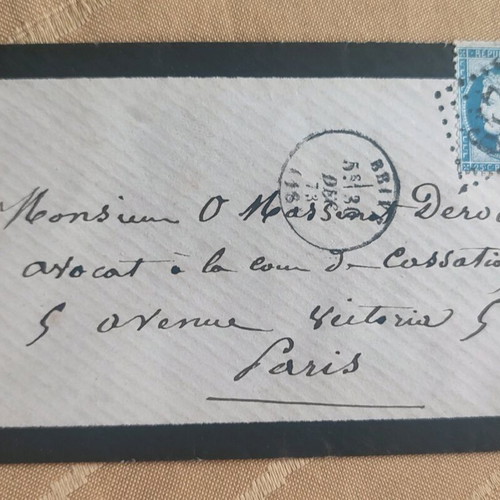 RÉPU
25 C
BRI
5E
3
DEC.
73
(18)
Monsieur O Massenat Déro
avocat à la cour de Cassatio
5 avenue Victoria 5
Paris